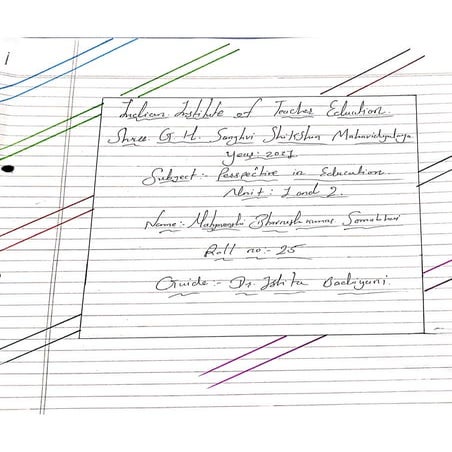 Indian Institute of Teacher Education
Shree G. H. Sanghvi Shikshan Mahavidyalaya
Year:- 2021
Subject:- Perspective in Education
Unit: 1 and 2.
Name:-
Roll no:- 25
Guide:- Dr. Ishita